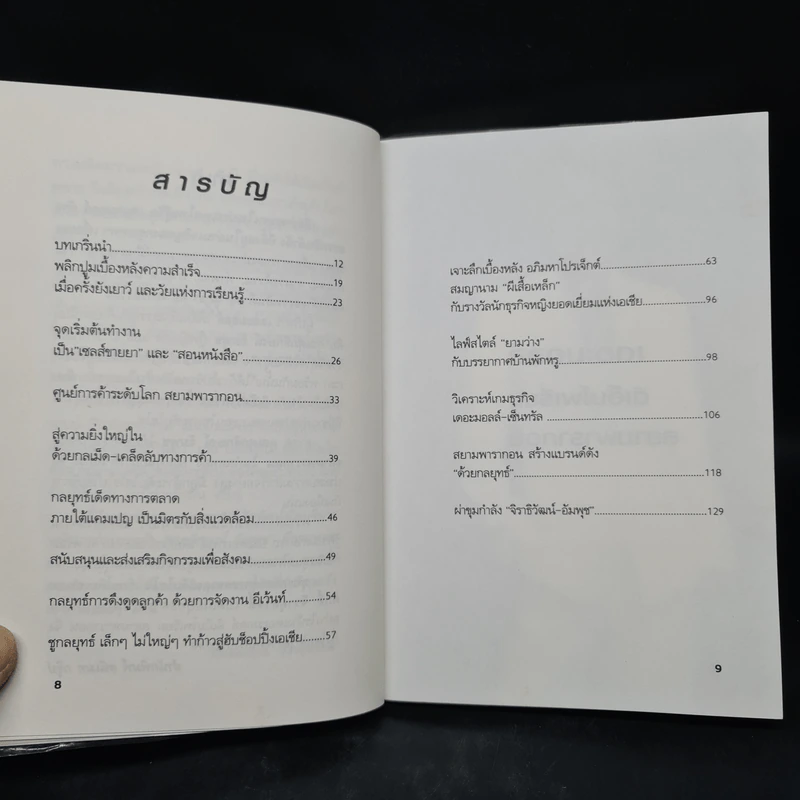 สารบัญ
บทเกริ่นนำ..........12
พลิกปูมเบื้องหลังความสำเร็จ..........19
เมื่อครั้งยังเยาว์ และวัยแห่งการเรียนรู้..........23
จุดเริ่มต้นทำงาน
เป็น"เซลส์ขายยา" และ "สอนหนังสือ"..........26
ศูนย์การค้าระดับโลก สยามพารากอน..........33
สู่ความยิ่งใหญ่ใน
ด้วยกลเม็ด-เคล็ดลับทางการค้า..........39
กลยุทธ์เด็ดทางการตลาด
ภายใต้แคมเปญ เป็นมิตรกับสิ่งแวดล้อม..........46
สนับสนุนและส่งเสริมกิจกรรมเพื่อสังคม..........49
กลยุทธ์การดึงดูดลูกค้า ด้วยการจัดงาน อีเว้นท์..........54
ชูกลยุทธ์ เล็กๆ ไม่ใหญ่ๆ ทำก้าวสู่ฮับช็อปปิ้งเอเชีย.......57
8
เจาะลึกเบื้องหลัง อภิมหาโปรเจ็กต์..........63
สมญานาม "ผีเสื้อเหล็ก"
กับรางวัลนักธุรกิจหญิงยอดเยี่ยมแห่งเอเชีย..........96
ไลฟ์สไตล์ "ยามว่าง"
กับบรรยากาศบ้านพักหรู..........98
วิเคราะห์เกมธุรกิจ
เดอะมอลล์-เซ็นทรัล ..........106
สยามพารากอน สร้างแบรนด์ดัง
"ด้วยกลยุทธ์"..........118
ผ่าขุมกำลัง "จิราธิวัฒน์-อัมพุช"..........129
9